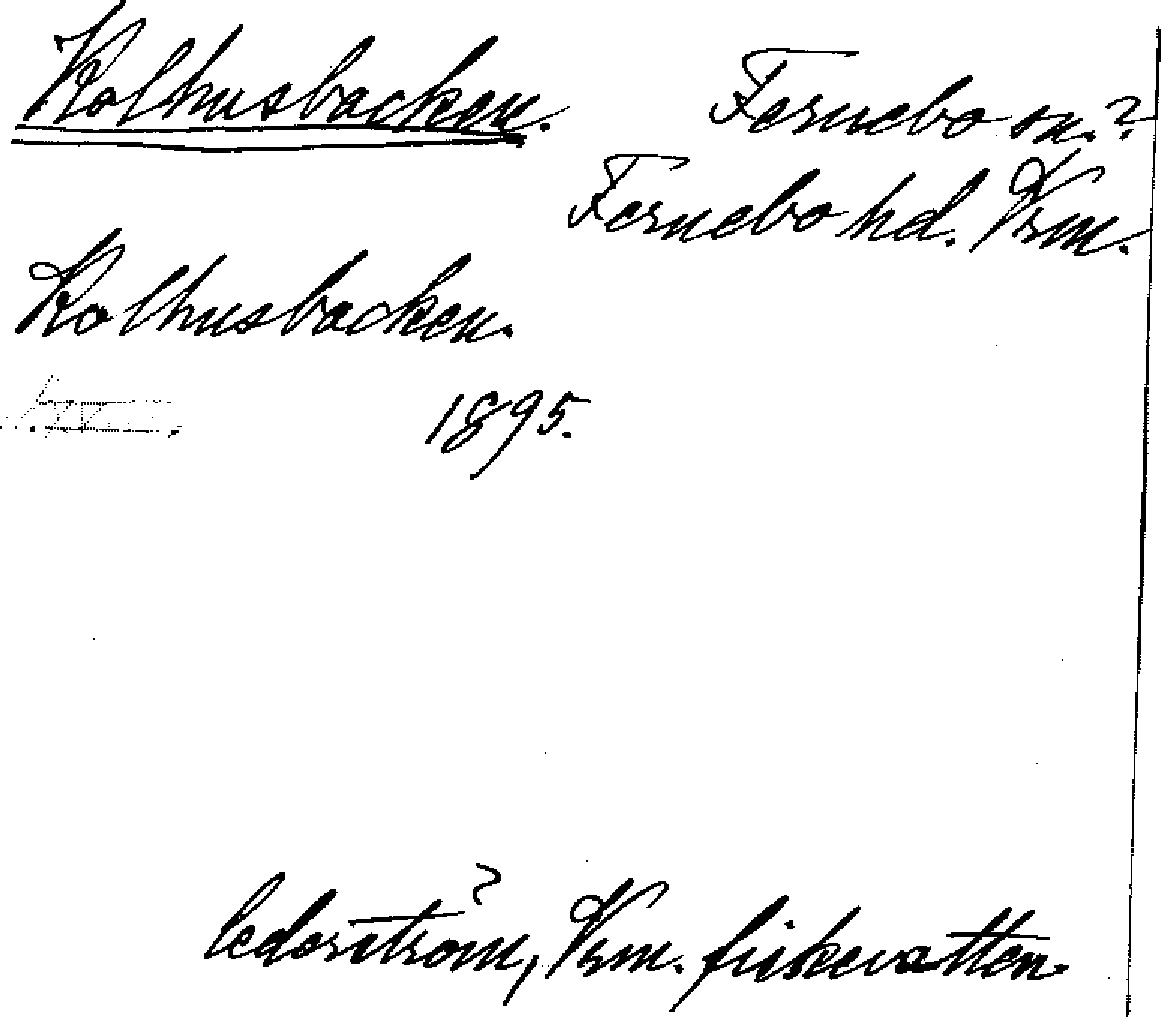 Kolhusbacken. Fernebo sn.?
Fernebo hd. Vrm.
Kolhusbacken.
1895.
Cederström, Vrm. fiskevatten.